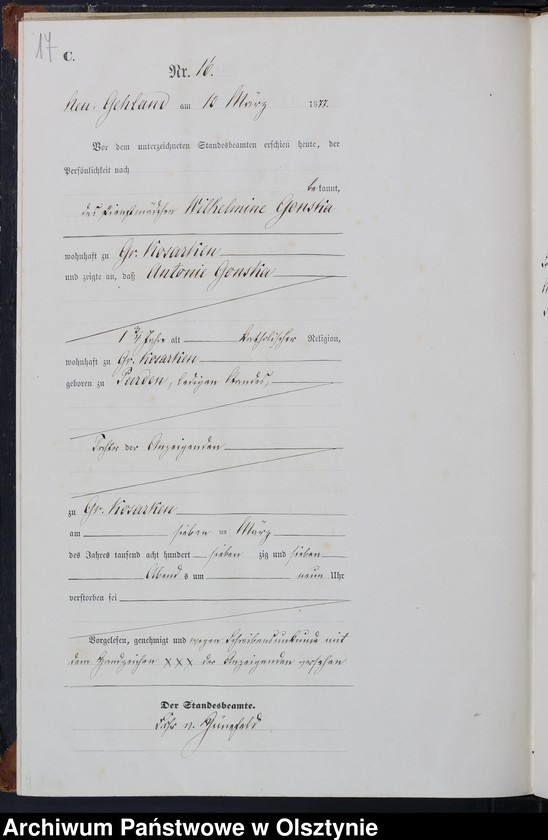 17
C.
Nr. 16.
Neu-Gehland am 10 März 1877.
Vor dem unterzeichneten Standesbeamten erschien heute, der
Persönlichkeit nach
bekannt,
das Dienstmädchen Wilhelmine Gonska
wohnhaft zu Gr. Kosarken
und zeigte an, daß Antonie Gonska
1 3/4 Jahr alt Katholischer Religion,
wohnhaft zu Gr. Kosarken
geboren zu Purden, ledigen Standes,
Tochter der Anzeigenden
zu Gr. Kosarken
am sieben ten März
des Jahres tausend acht hundert sieben zig und sieben
Abend s um neun Uhr
verstorben sei
Vorgelesen, genehmigt und wegen Schreibensunkunde mit
dem Handzeichen XXX der Anzeigenden versehen
Der Standesbeamte.
v.
Archiwum Państwowe w Olsztynie